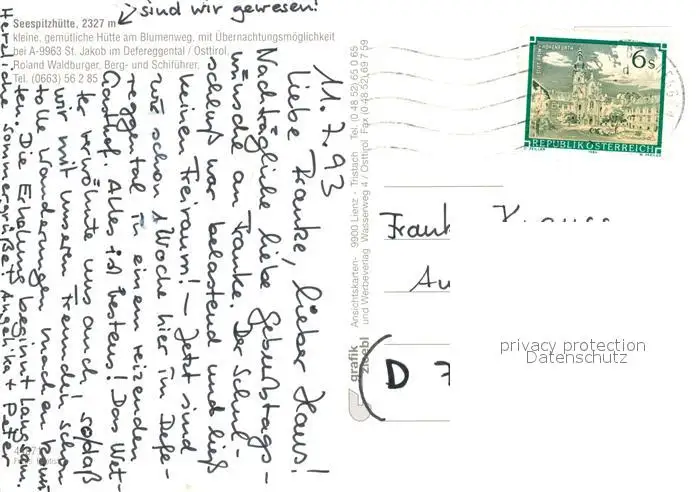 sind wir gewesen!
Seespitzhütte, 2327 m
kleine, gemütliche Hütte am Blumenweg, mit Übernachtungsmöglichkeit
bei A-9963 St. Jakob im Defereggental / Osttirol.
Roland Waldburger, Berg- und Schiführer,
Tel. (0663) 56 2 85
11.7.93
Liebe Frauke, lieber Hans!
Nachträgliche liebe Geburtstags-
wünsche an Frauke. Der Schul-
schluß war belastend und ließ
keinen Freiraum! – Jetzt sind
wir schon 1 Woche hier im Defe-
reggental in einem reizenden
Gasthof. Alles ist bestens! Das Wet-
ter verwöhnte uns auch sodaß
wir mit unseren Freunden schon
tolle Wanderungen machen konn-
ten. Die Erholung beginnt langsam.
Herzliche Sommergrüße! Angelika + Peter
grafik
zloebl
Ansichtskarten- 9900 Lienz - Tristach Tel. (0 48 52) 65 0 65
und Werbeverlag Wasserweg 4 / Osttirol Fax (0 48 52) 69 7 59
6 S
STIFT HOHENFURTH
REPUBLIK ÖSTERREICH
Frank
Au
D 7
privacy protection
Datenschutz